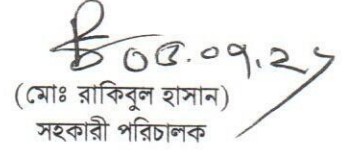 ০৫.০৭.২
(মোঃ রাকিবুল হাসান)
সহকারী পরিচালক